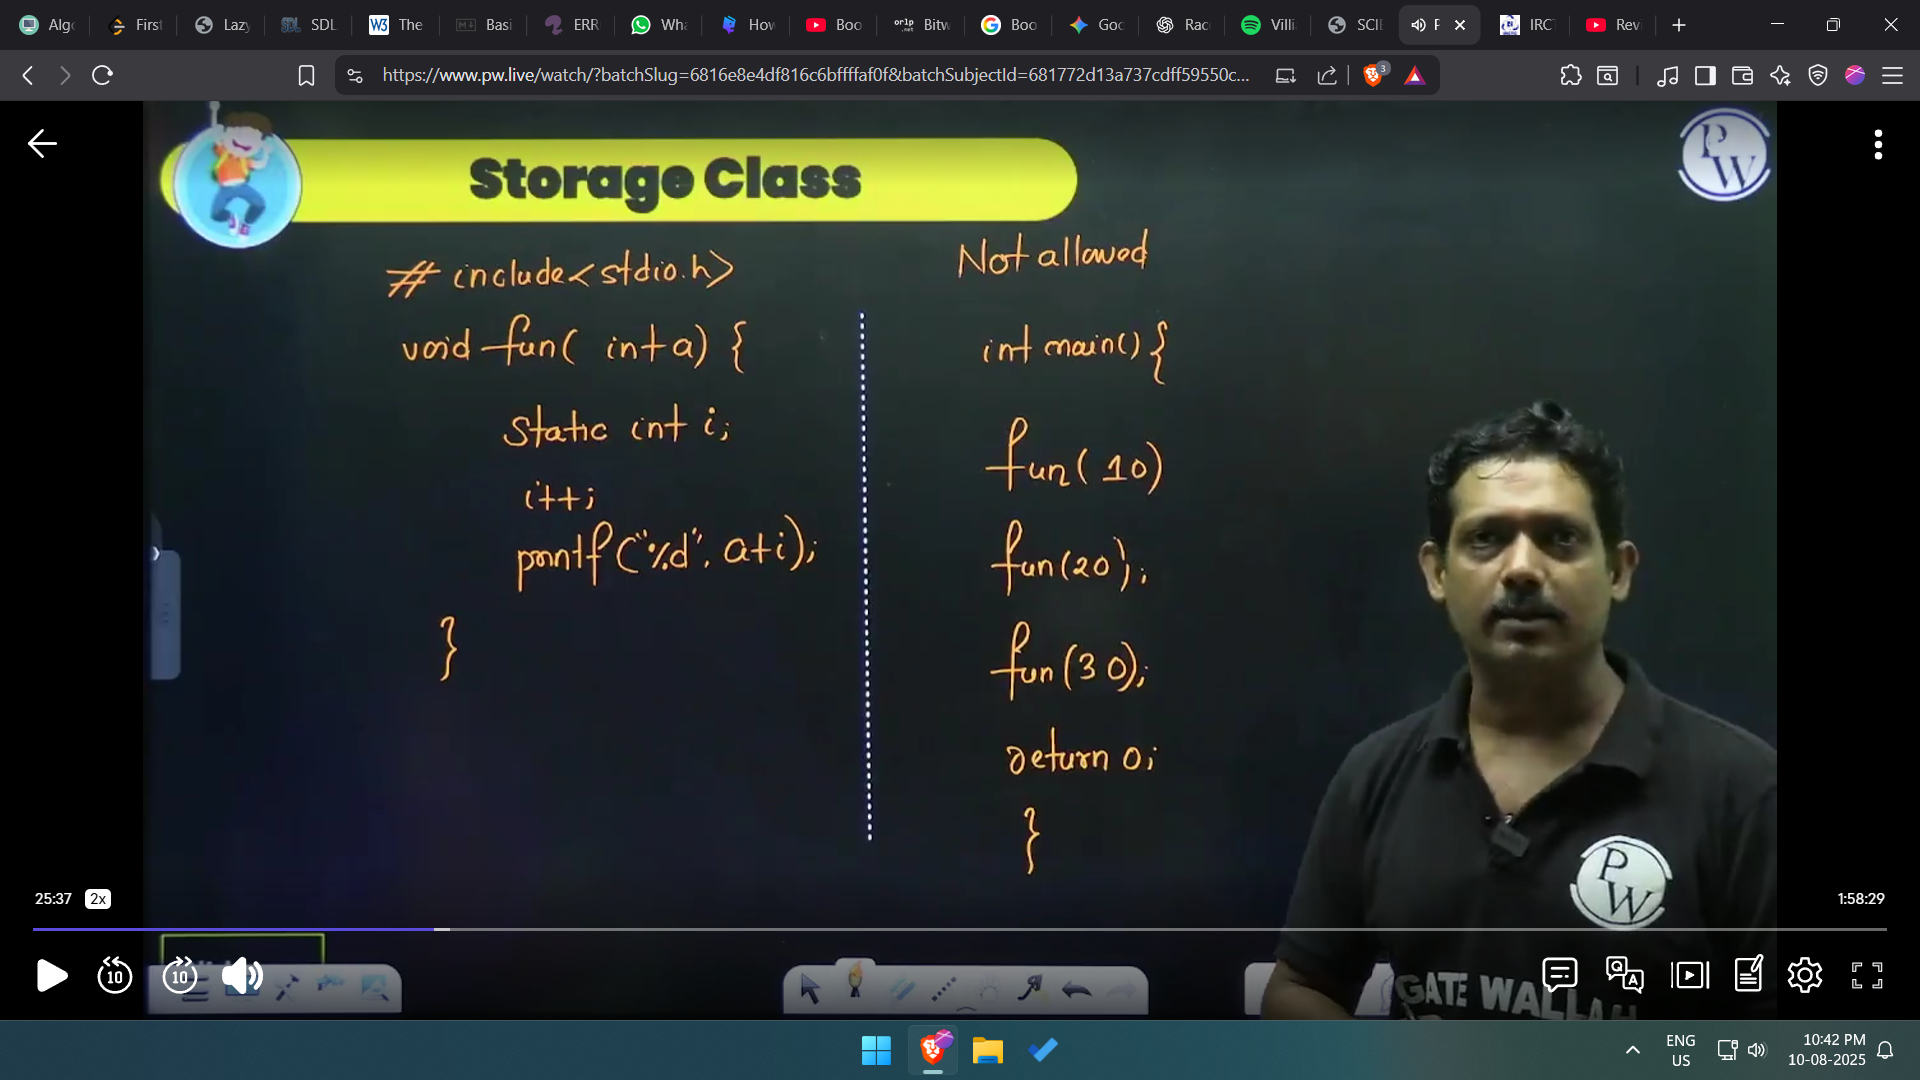 Algo
First
Lazy
SDL
The
Basi
ERR
Wha
How
Boo
Bitw
Boo
Goo
Rac
Villi
SCIE
P
IRCT
Rev
https://www.pw.live/watch/?batchSlug=6816e8e4df816c6bffffaf0f&batchSubjectId=681772d13a737cdff59550c...
3
Storage Class
PW
# include<stdio.h>
void fun( int a) {
static int i;
i++;
printf("%d", a+i);
}
Not allowed
int main() {
fun( 10)
fun(20);
fun(30);
return 0;
}
PW
GATE WALLAH
25:37 2x
1:58:29
10
10
ENG
US
10:42 PM
10-08-2025